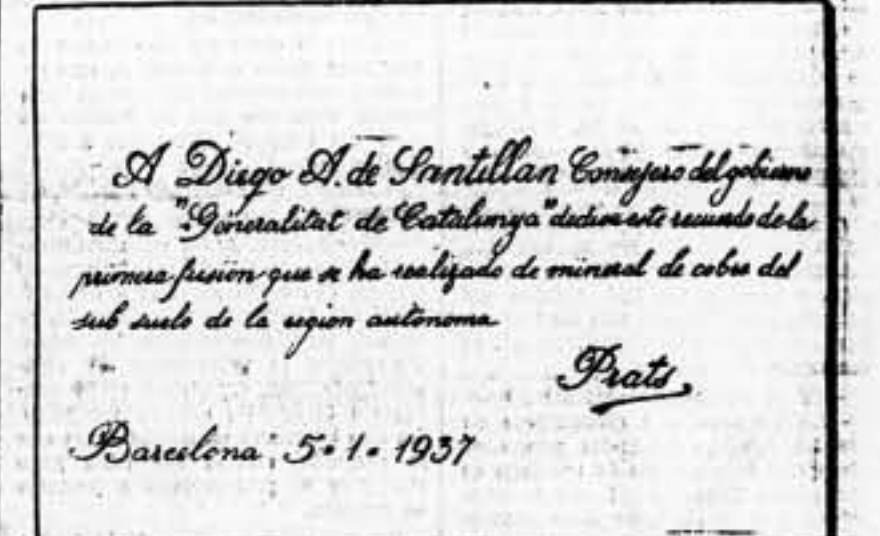 A Diego A. de Santillan Consejero del gobierno
de la "Generalitat de Catalunya" dedica este recuerdo de la
primera fusión que se ha realizado de mineral de cobre del
sub suelo de la region autónoma
Prats
Barcelona, 5·1·1937